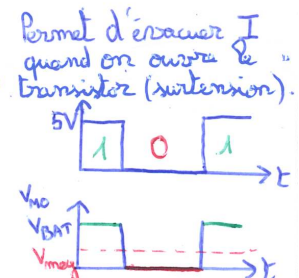 Permet d'évacuer I
quand on ouvre le
transistor (surtension).
5V
1 0 1
t
VMO
VBAT
Vmoy
t